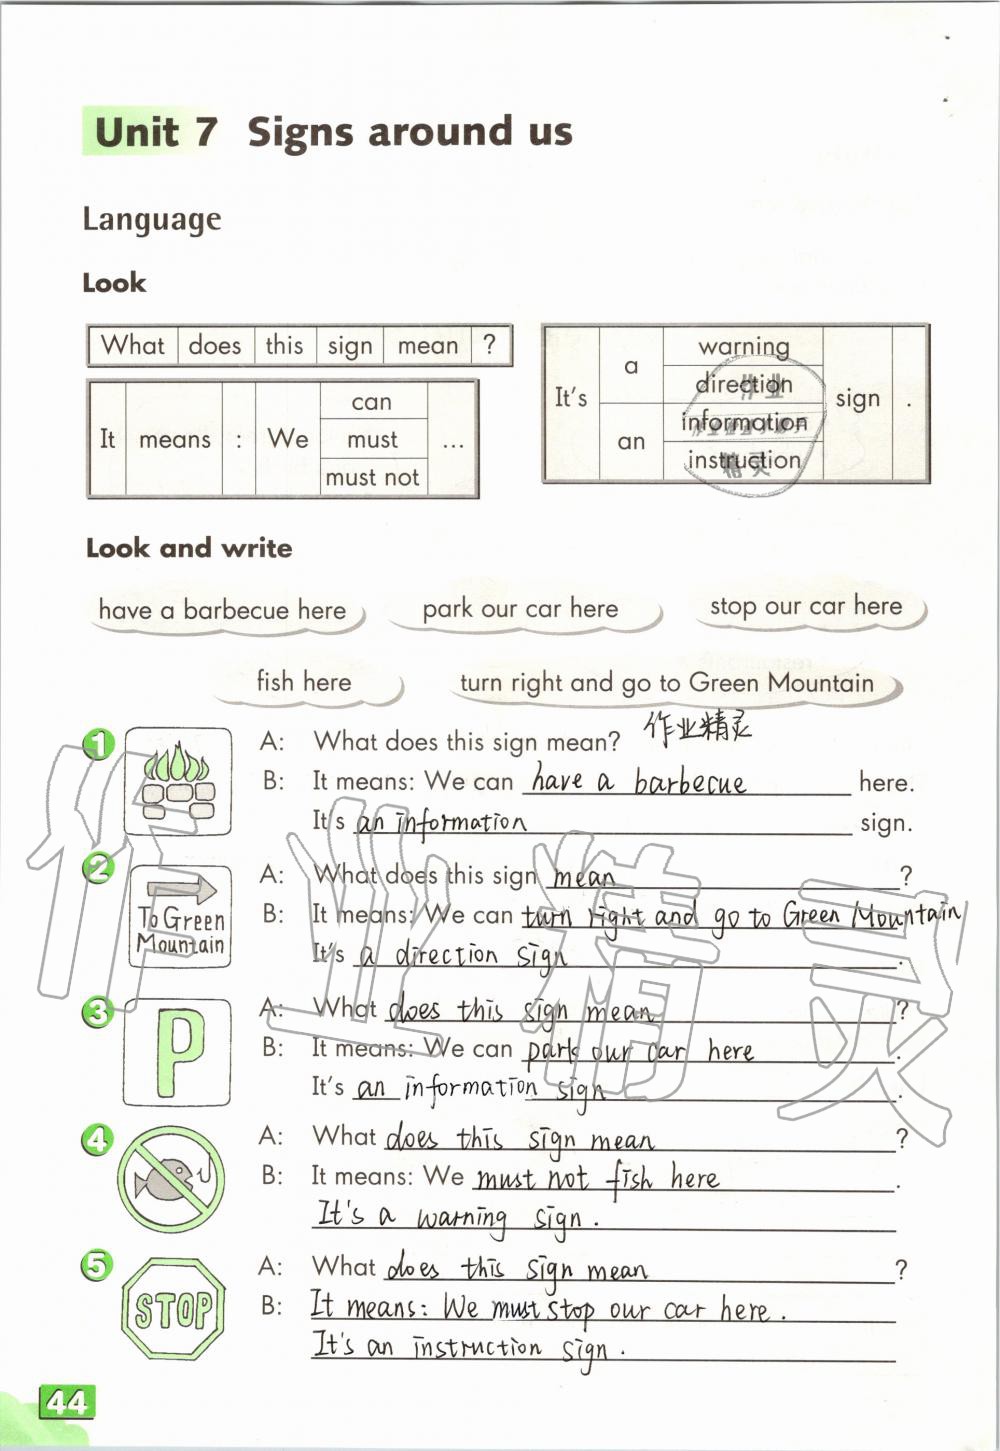 Unit 7 Signs around us
Language
Look
What does this sign mean ?
It means : We can must must not ...
It's a warning direction an information instruction sign .
作业
精灵
Look and write
have a barbecue here park our car here stop our car here
fish here turn right and go to Green Mountain
作业精灵
1 A: What does this sign mean?
B: It means: We can have a barbecue here.
It's an information sign.
2 A: What does this sign mean ?
To Green
Mountain
B: It means: We can turn right and go to Green Mountain
It's a direction sign .
3 A: What does this sign mean ?
P
B: It means: We can park our car here .
It's an information sign .
4 A: What does this sign mean ?
B: It means: We must not fish here .
It's a warning sign .
5 A: What does this sign mean ?
STOP
B: It means: We must stop our car here .
It's an instruction sign .
44
作业精灵